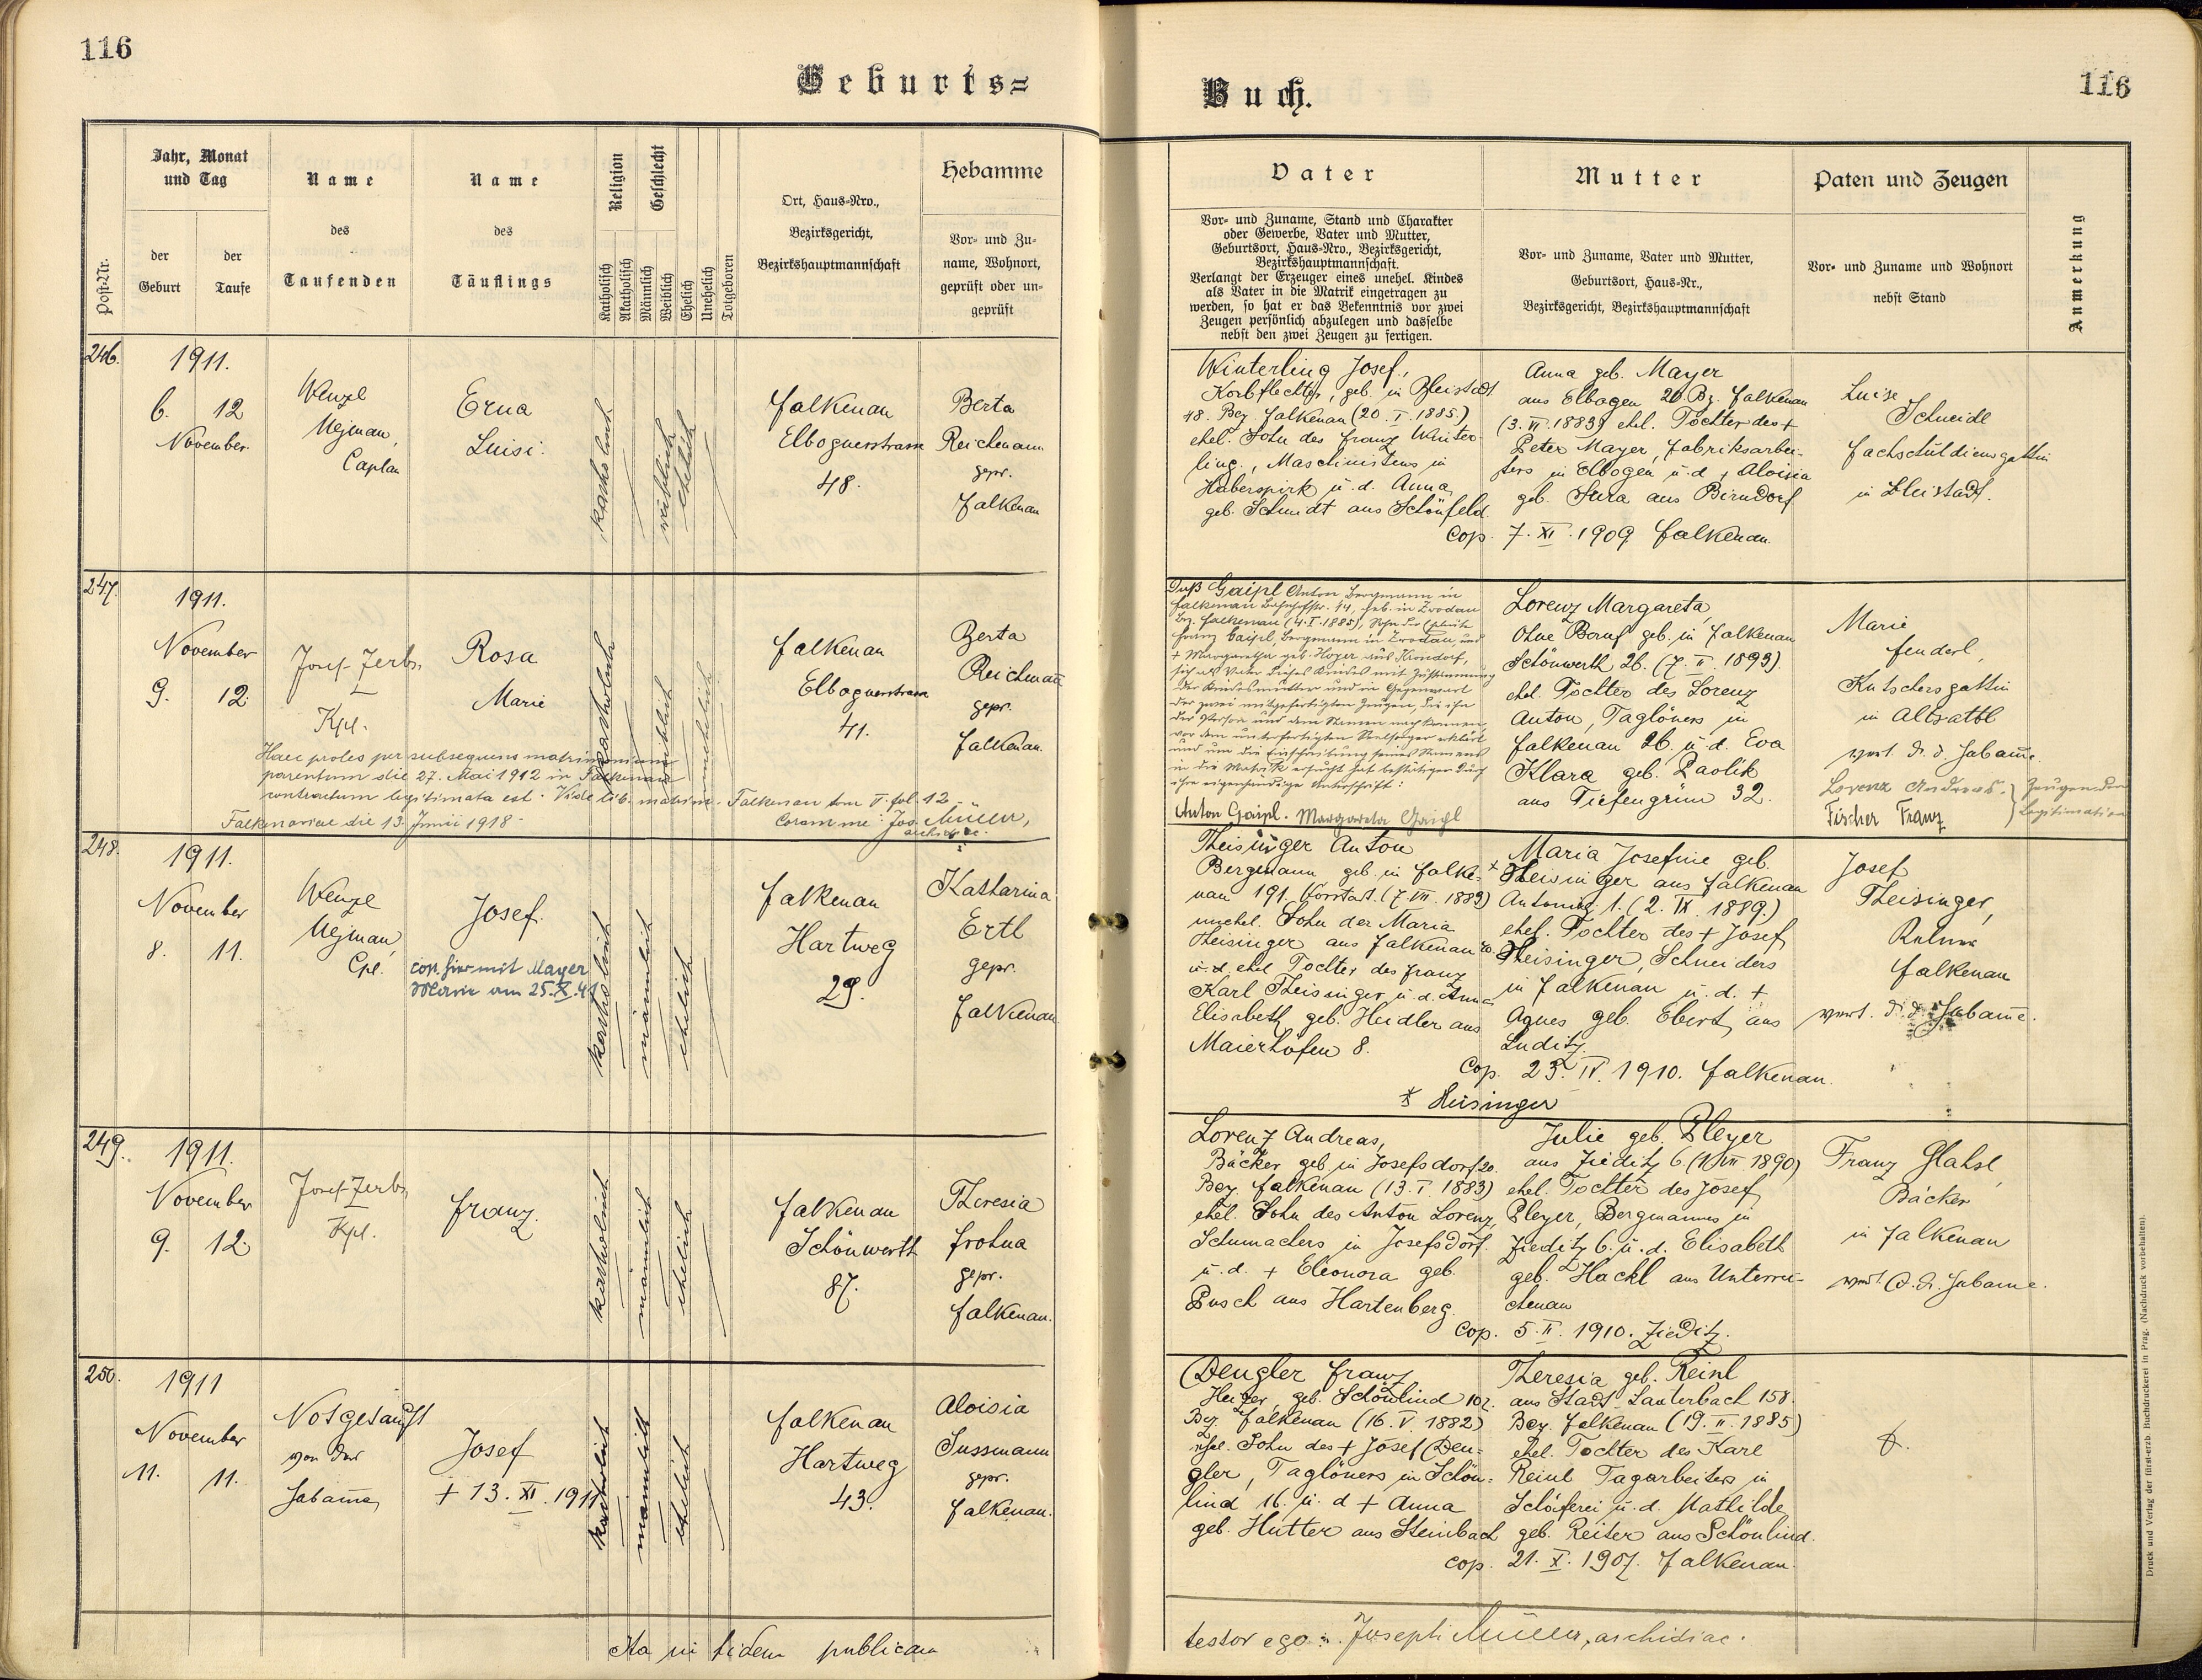 116
Geburts=
Post-Nr.
Jahr, Monat
und Tag
der
Geburt
der
Taufe
Name
des
Taufenden
Name
des
Täuflings
Religion
Katholisch
Akatholisch
Geschlecht
Männlich
Weiblich
Ehelich
Unehelich
Totgeboren
Ort, Haus-Nro.,
Bezirksgericht,
Bezirkshauptmannschaft
Hebamme
Vor- und Zu-
name, Wohnort,
geprüft oder un-
geprüft
246.
1911.
6. 12
November.
Wenzl
Mejman,
Caplan
Erna
Luisi.
katholisch
weiblich
ehelich
Falkenau
Elbognerstrasse
48.
Berta
Reichmann
gepr.
Falkenau
247.
1911.
November
9. 12.
Josef Zerbs,
Kpl.
Rosa
Marie
katholisch
weiblich
unehelich
Falkenau
Elbognerstrasse
41.
Berta
Reichmann
gepr.
Falkenau.
Haec proles per subsequens matrimonium
parentum die 27. Mai 1912 in Falkenau
contractum legitimata est. Vide lib. matrim. Falkenau tom V. fol. 12
Falkenaviae die 13. Junii 1918.
Coram me: Jos. Müller,
archidiac.
248.
1911.
November
8. 11.
Wenzl
Mejman,
Cpl.
Josef.
cop. hier mit Mayer
Marie am 25.X.41
katholisch
männlich
ehelich
Falkenau
Hartweg
29.
Katharina
Ertl
gepr.
Falkenau
249.
1911.
November
9. 12.
Josef Zerbs,
Kpl.
Franz.
katholisch
männlich
ehelich
Falkenau
Schönwerth
87.
Theresia
Frohna
gepr.
Falkenau.
250.
1911
November
11. 11.
Notgetauft
von der
Hebamme
Josef
+ 13. XI. 1911
katholisch
männlich
ehelich
Falkenau
Hartweg
43.
Aloisia
Sussmann
gepr.
Falkenau.
Ita in fidem publicam
116
Buch.
Vater
Vor- und Zuname, Stand und Charakter
oder Gewerbe, Vater und Mutter,
Geburtsort, Haus-Nro., Bezirksgericht,
Bezirkshauptmannschaft.
Verlangt der Erzeuger eines unehel. Kindes
als Vater in die Matrik eingetragen zu
werden, so hat er das Bekenntnis vor zwei
Zeugen persönlich abzulegen und dasselbe
nebst den zwei Zeugen zu fertigen.
Mutter
Vor- und Zuname, Vater und Mutter,
Geburtsort, Haus-Nr.,
Bezirksgericht, Bezirkshauptmannschaft
Paten und Zeugen
Vor- und Zuname und Wohnort
nebst Stand
Anmerkung
Winterling Josef,
Korbflechter, geb. in Bleistadt
48. Bez. Falkenau (20. I. 1885.)
ehel. Sohn des Franz Winter-
ling, Maschinistens in
Haberspirk u. d. Anna,
geb. Schmidt aus Schönfeld.
Anna geb. Mayer
aus Elbogen 20 Bz. Falkenau
(3. VI. 1883) ehel. Tochter des +
Peter Mayer, Fabriksarbei-
ters in Elbogen u. d. + Aloisia
geb. Sura aus Birndorf.
Cop. 7. XI. 1909 Falkenau.
Luise
Schneidl
Fachschuldienersgattin
in Bleistadt.
Daß Gaipl Anton Bergmann in
Falkenau Bahnhofstr. 14, geb. in Zwodau
Bz. Falkenau (4. I. 1885), Sohn der Eheleute
Franz Gaipl, Bergmann in Zwodau, und
+ Margaretha geb. Hoyer aus Krondorf,
sich als Vater dieses Kindes mit Zustimmung
der Kindesmutter und in Gegenwart
der zwei mitgefertigten Zeugen, die ihn
der Person und dem Namen nach kennen,
vor dem unterfertigten Seelsorger erklärt
und um die Einschreibung seines Namens
in die Matrik ersucht hat bestätigen durch
ihre eigenhändige Unterschrift:
Anton Gaipl. Margareta Gaipl
Lorenz Margareta,
Ohne Beruf geb. in Falkenau
Schönwerth 26. (7. II. 1893).
ehel. Tochter des Lorenz
Anton, Taglöners in
Falkenau 26. u. d. Eva
Klara geb. Paolik
aus Tiefengrün 32.
Marie
Fenderl,
Kutschersgattin
in Altsattl
vert. d. d. Hebamme.
Lorenz Andreas.
Fischer Franz
Zeugen der
Legitimation
Theisinger Anton
Bergmann geb. in Falke-
nau 191. Vorstadt. (7. VII. 1889)
unehel. Sohn der Maria
Theisinger aus Falkenau
u. d. ehel. Tochter des Franz
Karl Theisinger u. d. Anna
Elisabeth geb. Heidler aus
Maierhöfen 8.
Maria Josefine geb.
* Theisinger aus Falkenau
Antonig. 1. (2. IX. 1889.)
ehel. Tochter des + Josef
Theisinger, Schneiders
in Falkenau u. d. +
Agnes geb. Ebert aus
Luditz.
Cop. 23. IV. 1910. Falkenau.
* Heisinger
Josef
Theisinger,
Falkenau
vert. d. d. Hebamme.
Lorenz Andreas,
Bäcker geb. in Josefsdorf 20.
Bez. Falkenau (13. I. 1883)
ehel. Sohn des Anton Lorenz,
Schumachers in Josefsdorf.
u. d. + Eleonora geb.
Pusch aus Hartenberg.
Julie geb. Pleyer
aus Zieditz 6. (1. VII. 1890)
ehel. Tochter des Josef
Pleyer, Bergmannes in
Zieditz 6. u. d. Elisabeth
geb. Hackl aus Unterrei-
chenau
Cop. 5. II. 1910. Zieditz.
Franz Glahsl,
Bäcker
in Falkenau
vert. d. d. Hebamme.
Dengler Franz
Heizer, geb. Schönlind 102.
Bez. Falkenau (16. V. 1882)
ehel. Sohn des + Josef Den-
gler, Taglöners in Schön-
lind 16. u. d. + Anna
geb. Hutter aus Steinbach
Theresia geb. Reinl
aus Stadt Lauterbach 158.
Bez. Falkenau (19. II. 1885)
ehel. Tochter des Karl
Reinl Tagarbeiters in
Schäferei u. d. Mathilde
geb. Reiter aus Schönlind.
Cop. 21. X. 1907. Falkenau.
testor ego: Joseph Müller, archidiac.
Druck und Verlag der fürst-erzb. Buchdruckerei in Prag. (Nachdruck vorbehalten).